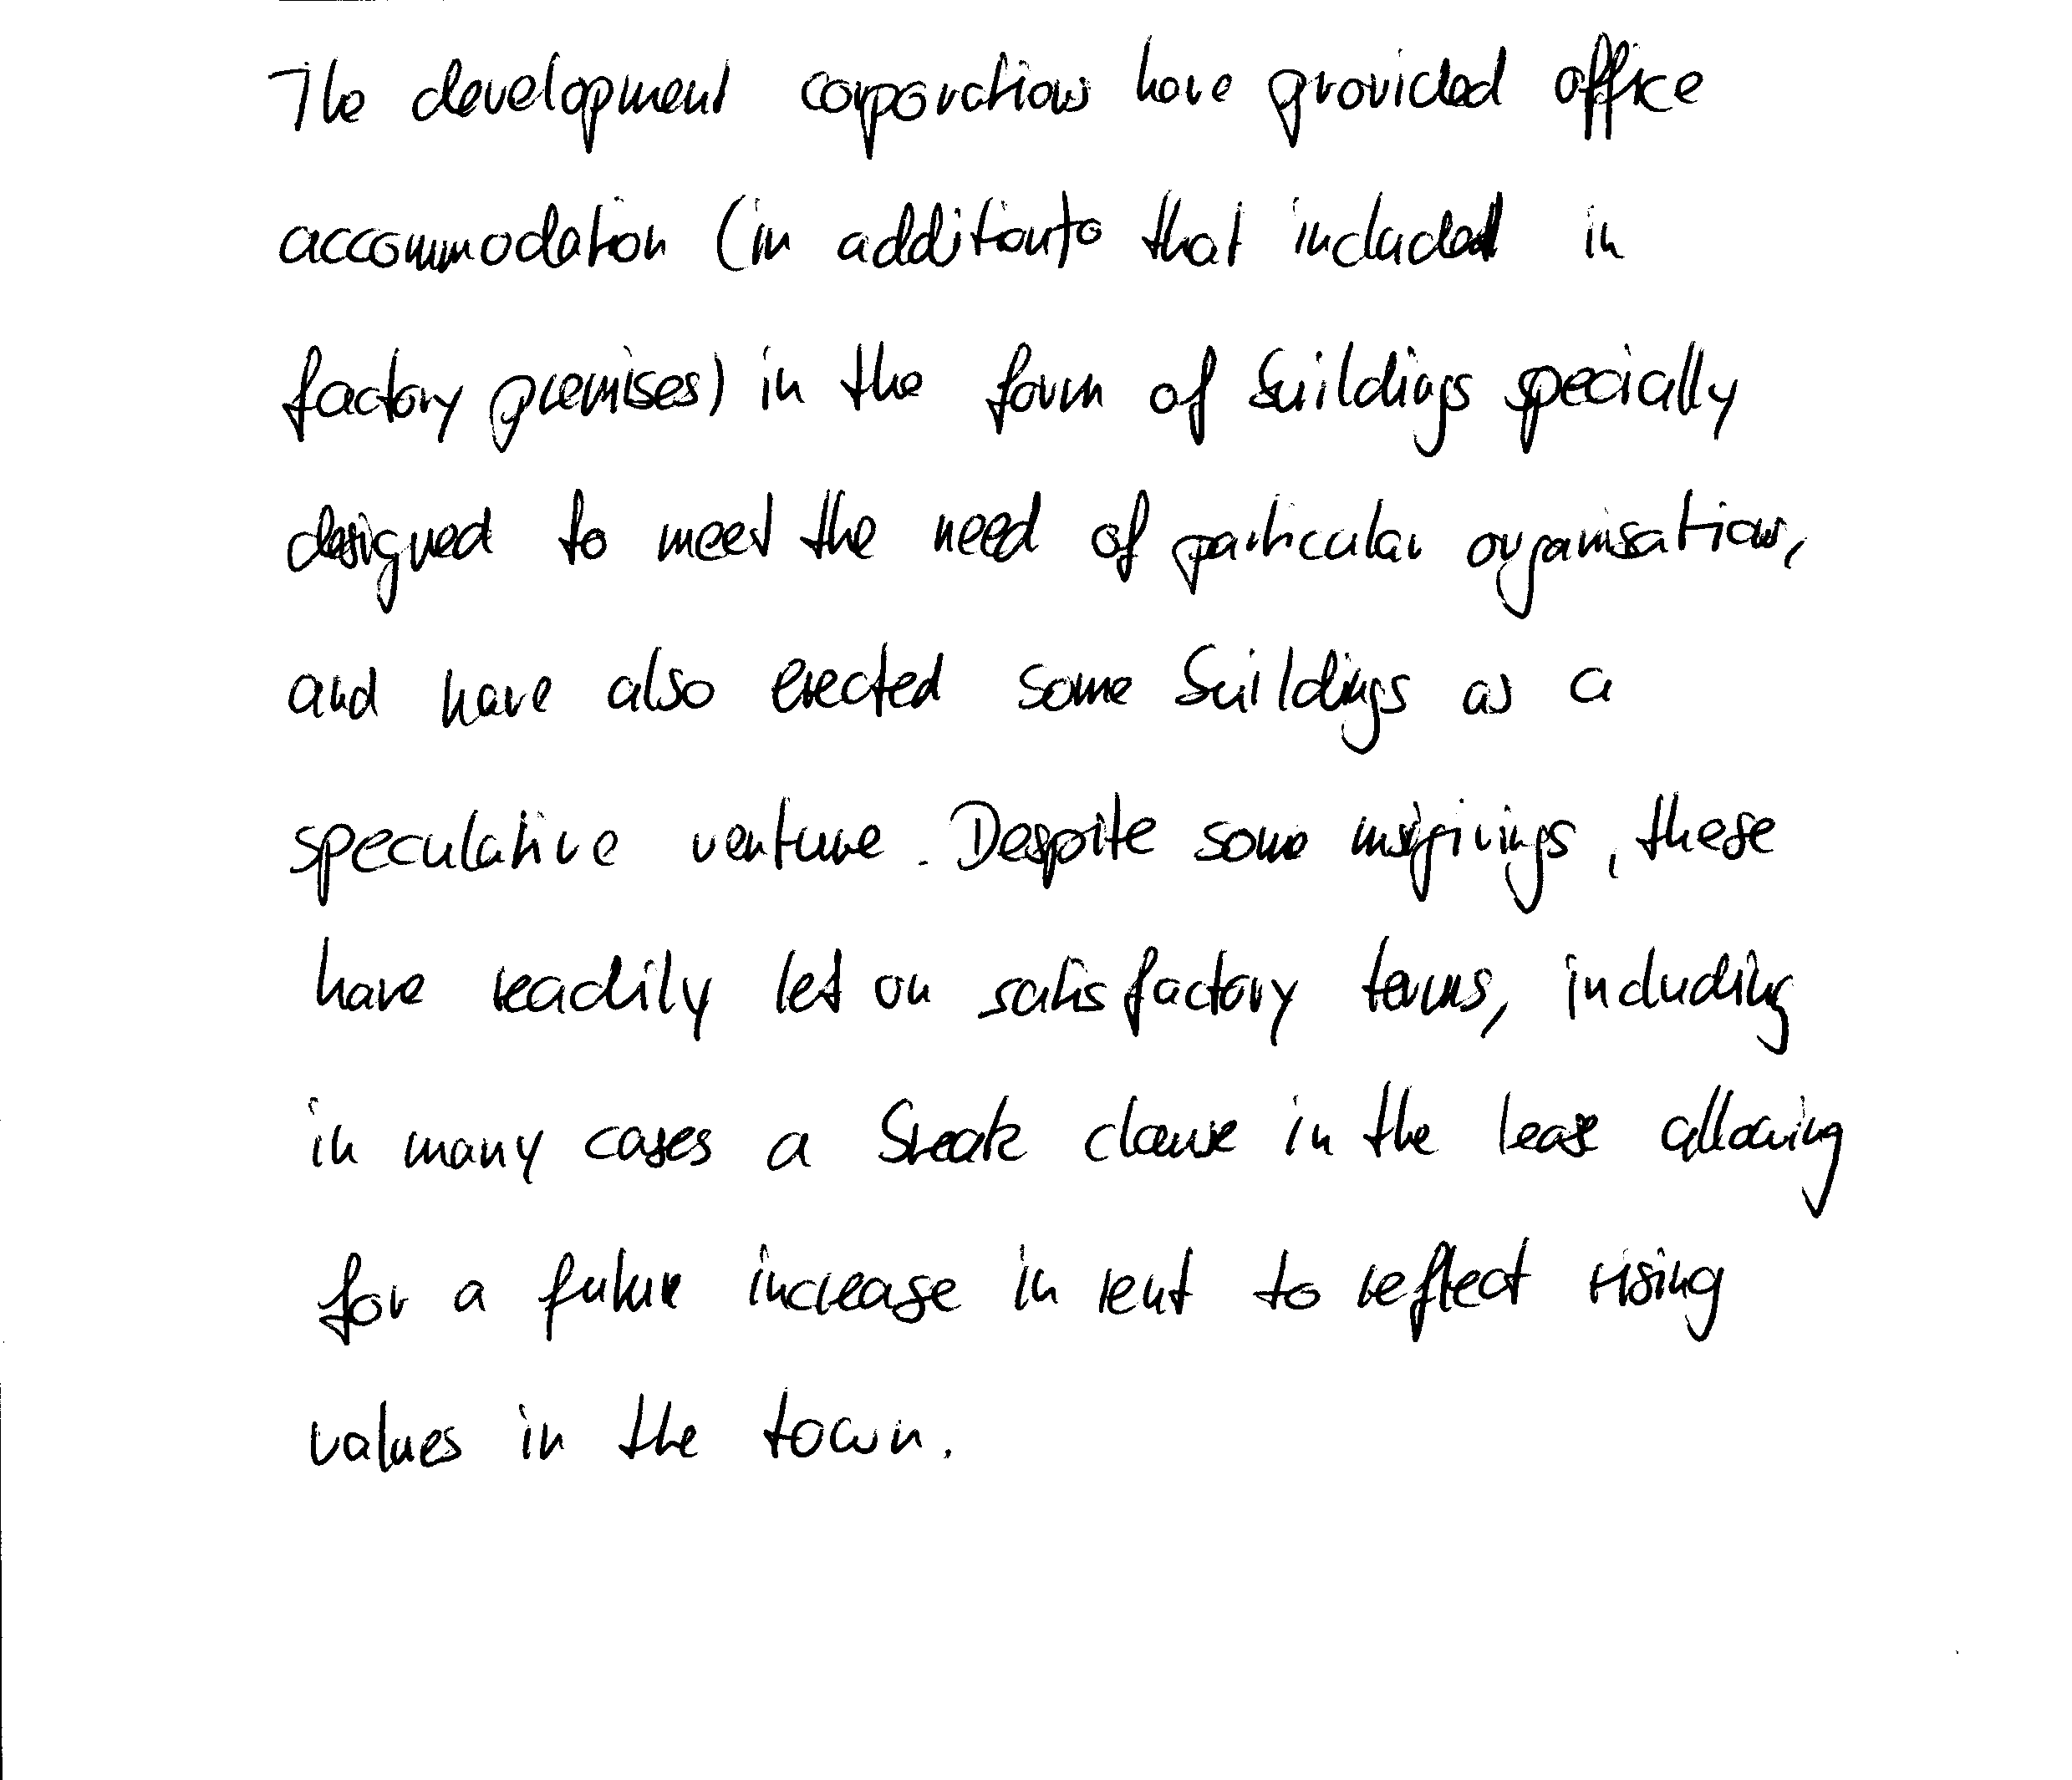 The development corporations have provided office
accommodation (in addition to that included in
factory premises) in the form of buildings specially
designed to meet the need of particular organisations,
and have also erected some buildings as a
speculative venture. Despite some misgivings, these
have readily let on satisfactory terms, including
in many cases a break clause in the lease allowing
for a future increase in rent to reflect rising
values in the town.